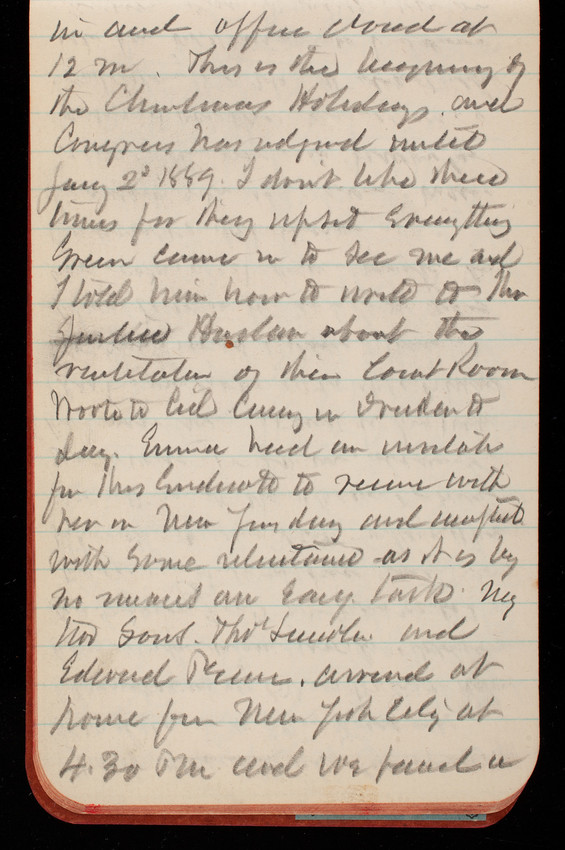 in and office closed at
12 m. This is the beginning of
the Christmas Holidays and
Congress has adjrned until
Jany 2d 1889. I don't like these
times for they upset everything
Green came in to see me and
I told him how to write to Mr
Justice Harlan about the
ventilation of their Court Room
Wrote to Lid Casey in Dresden to
day. Emma had an invitation
for Mrs Endicott to receive with
her on New Years day and accepted
with some reluctance as it is by
no means an easy task. My
two sons. Thos Lincoln and
Edward Pearce, arrived at
home from New York City at
4.30 Pm and we found a